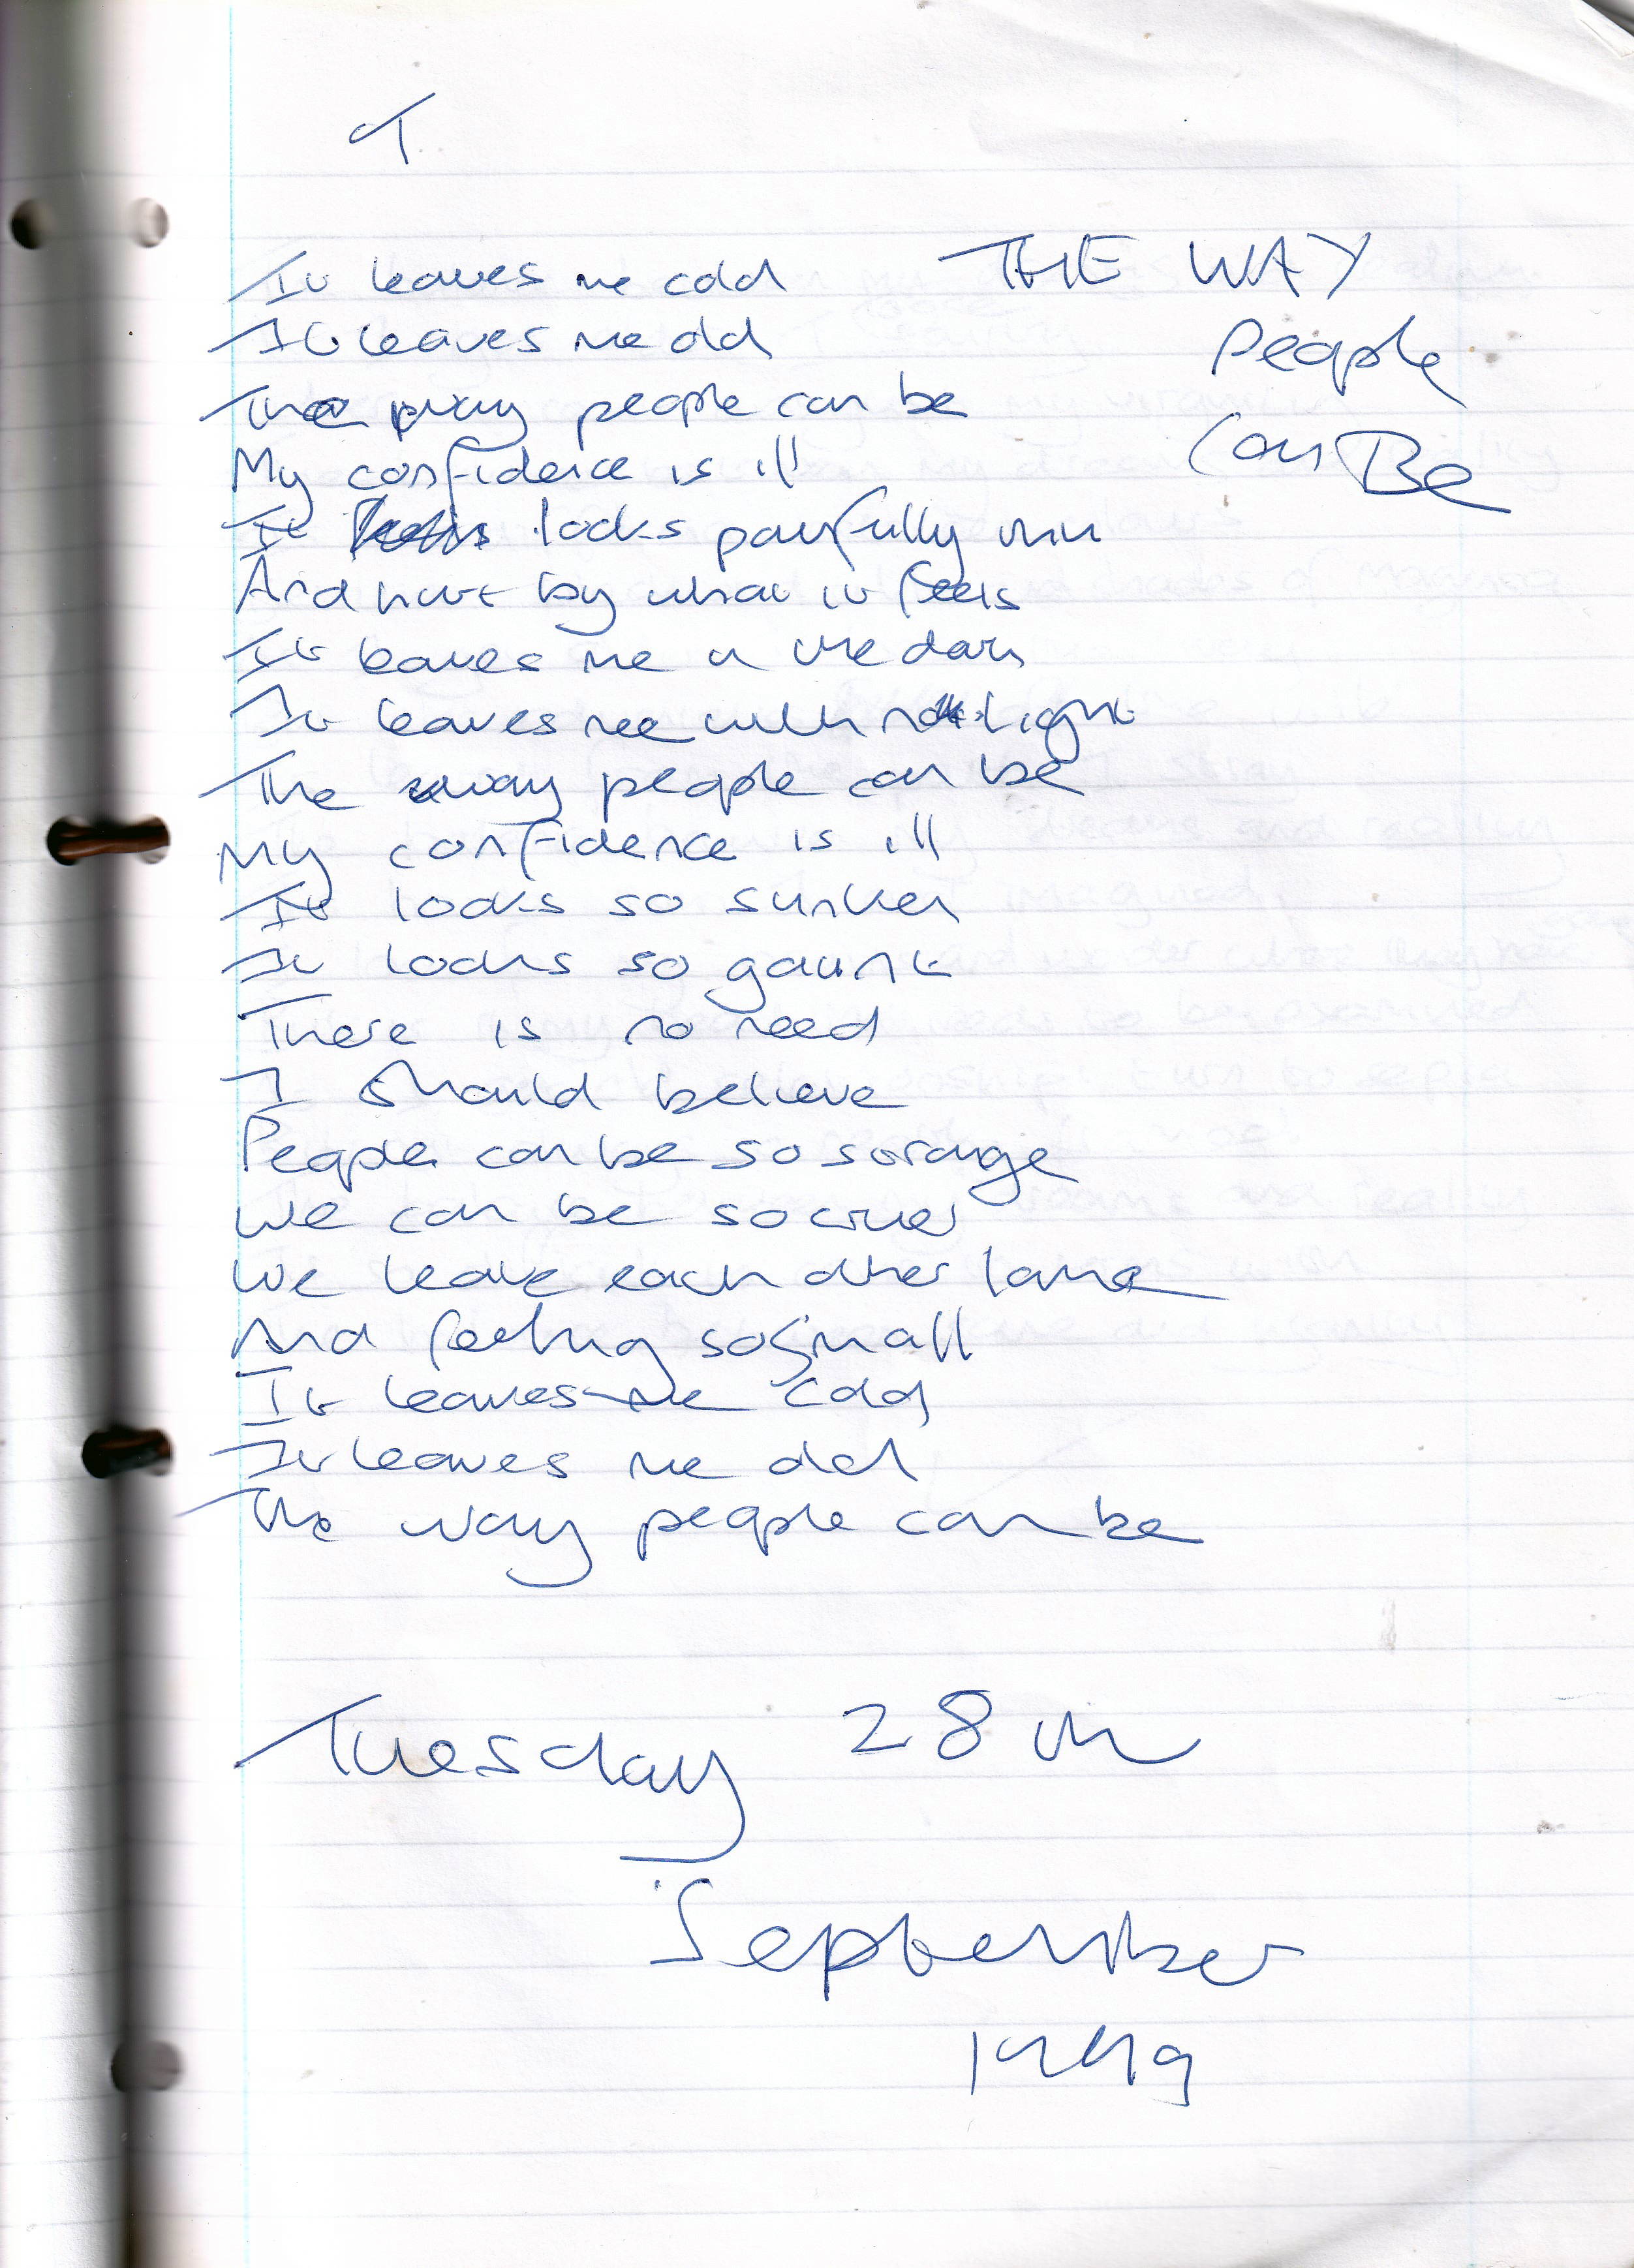 T
THE WAY
People
Can Be
It leaves me cold
It leaves me old
The way people can be
My confidence is ill
It looks painfully thin
And hurt by what it feels
It leaves me in the dark
It leaves me with no light
The way people can be
My confidence is ill
It looks so sunken
It looks so gaunt
There is no need
I should believe
People can be so strange
We can be so cruel
We leave each other lame
And feeling so small
It leaves me cold
It leaves me old
The way people can be
Tuesday 28th
September